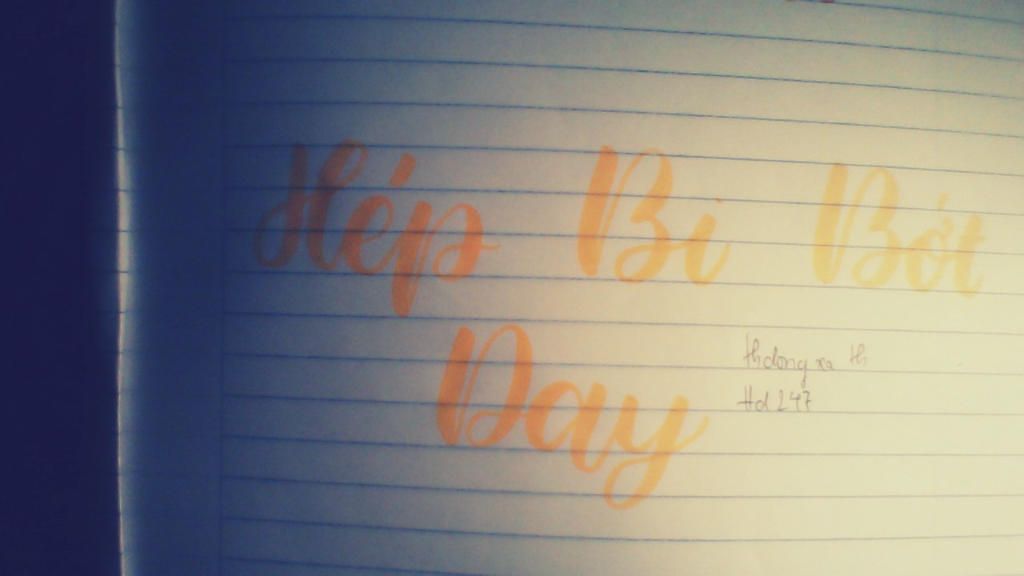 Hép Bi Bớt
Day
thdong xa th
Hd 247